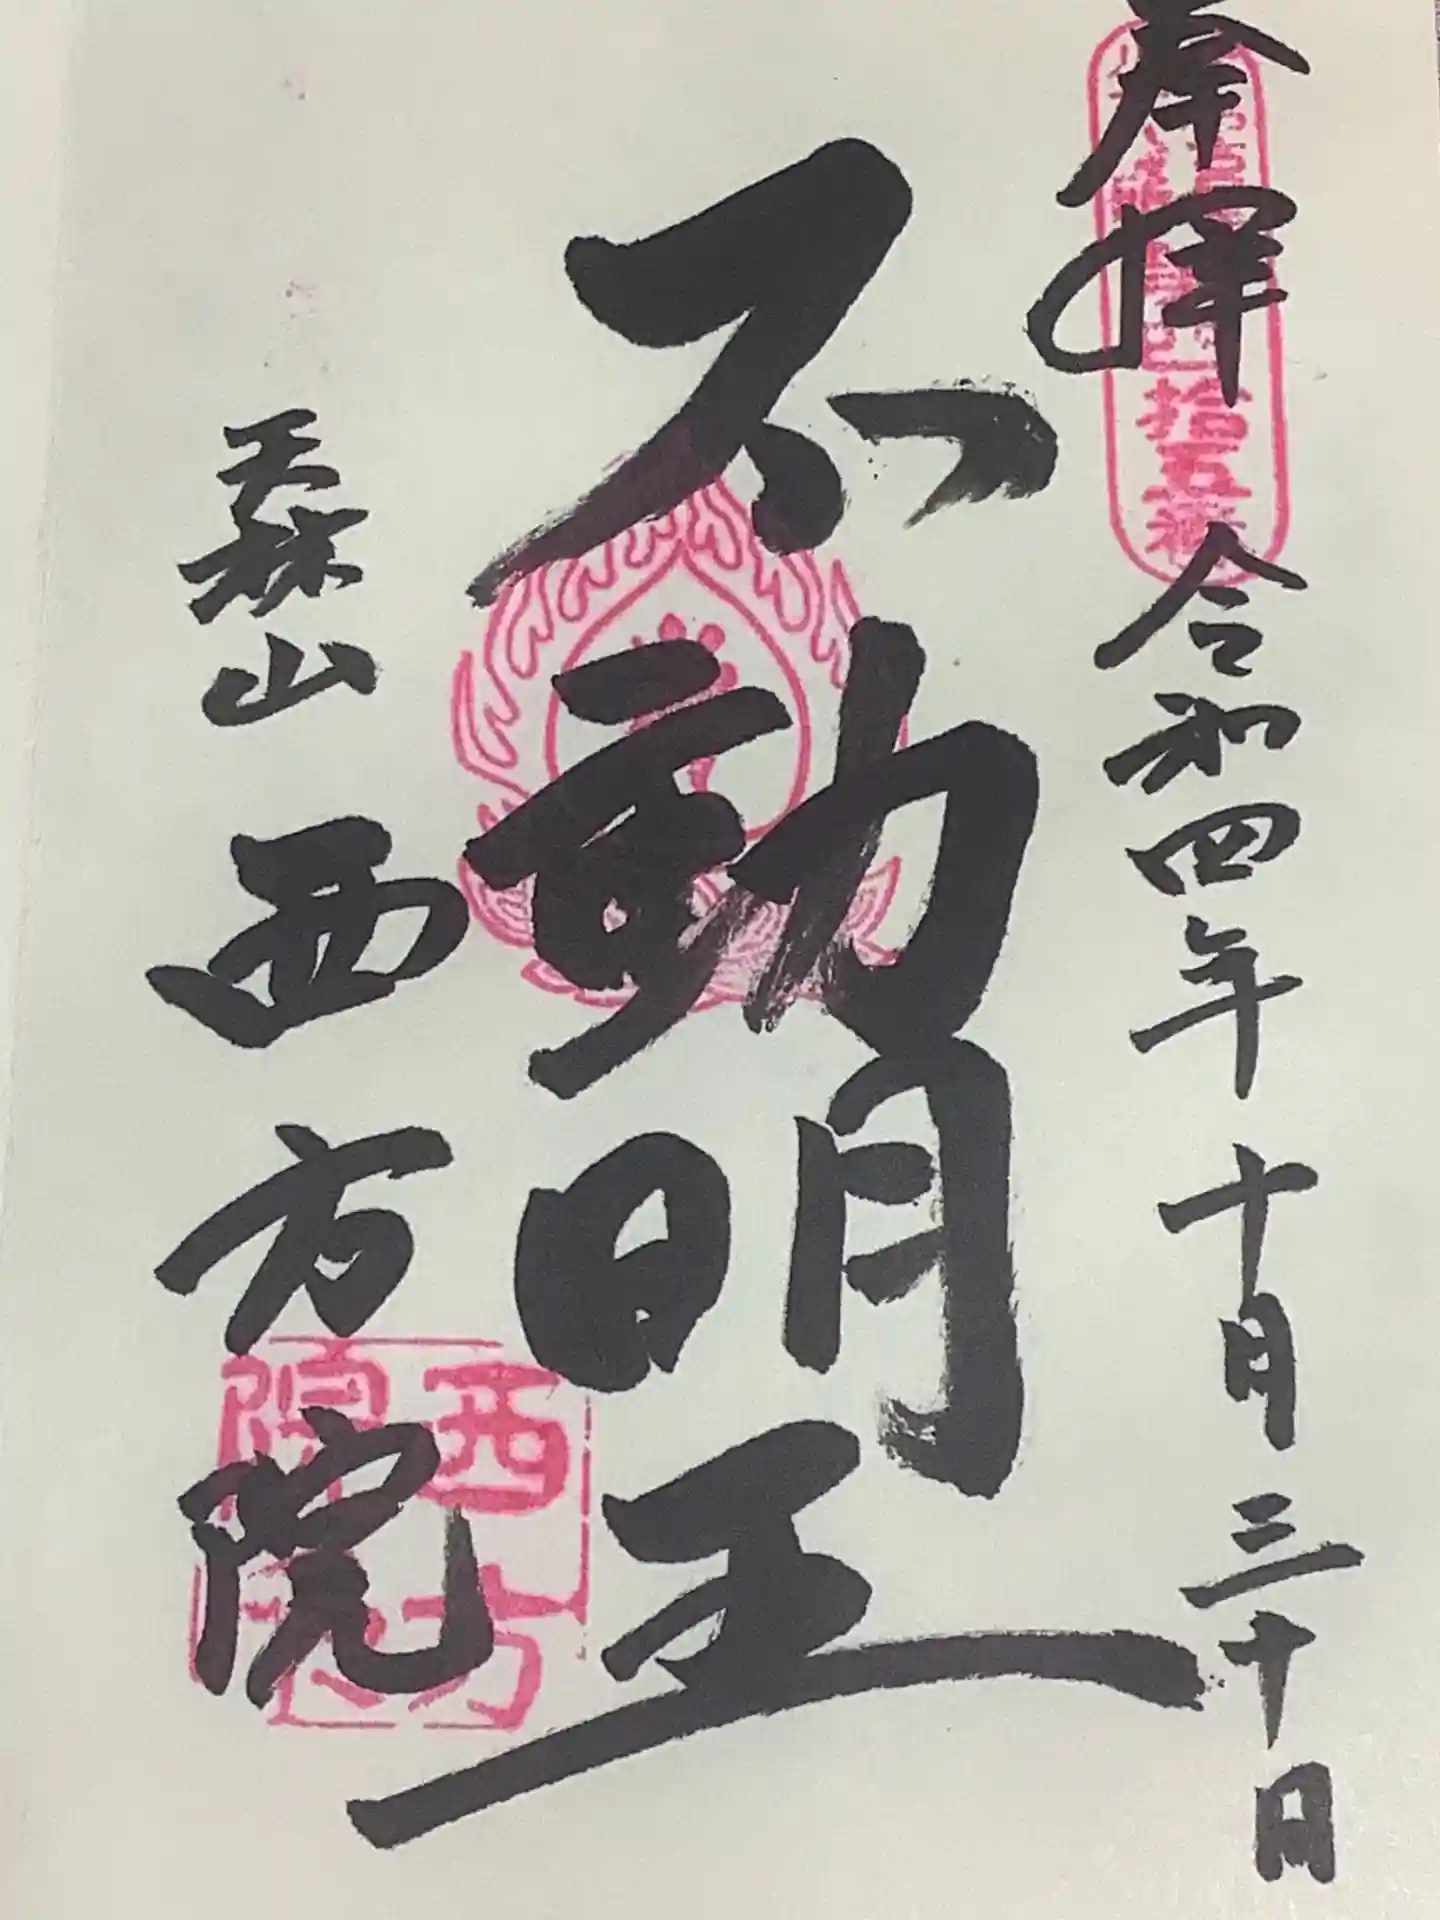 奉拝
令和四年十月三十日
不動明王
天林山
西方院
拾五番
西方院